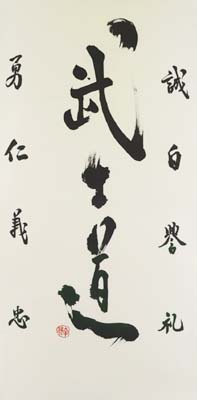 誠白誉礼
武士道
勇仁義忠